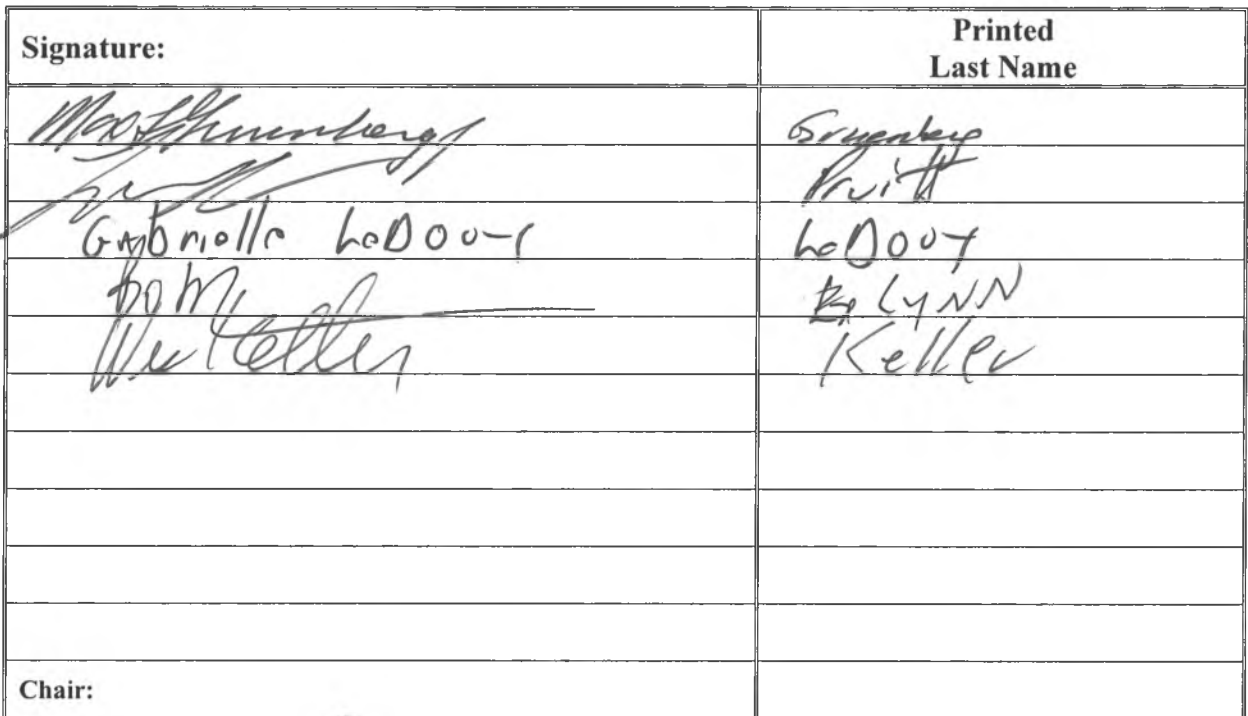 Signature: Printed Last Name
Max F Gruenberg Gruenberg
Pruitt
Gabrielle LeDoux LeDoux
Bob LYNN
Wes Keller Keller
Chair: